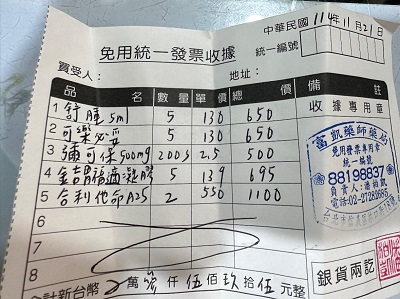 中華民國 114年11月21日
免用統一發票收據
統一編號
買受人： 地址：
品名 數量 單價 總價 備註
1 舒腫5ml 5 130 650 收據專用章
2 可樂必妥 5 130 650
3 彌可保500mg 200's 2.5 500
4 金吉胃福適凝膠 5 139 695
5 合利他命A25 2 550 1100
6
7
8
富凱藥師藥局
免用發票專用章
統一編號
88198837
負責人:潘柏凱
電話:02-27285
合計新台幣 萬 仟伍佰玖拾伍元整
銀貨兩訖